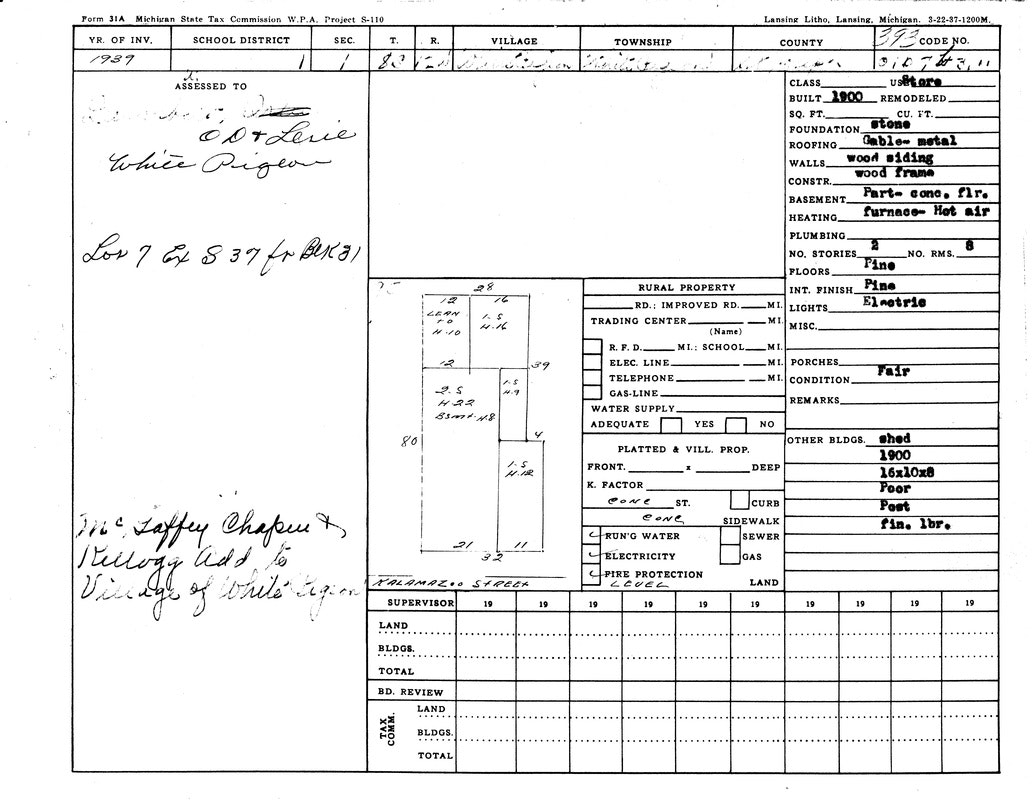 Form 31A Michigan State Tax Commission W.P.A. Project S-110
Lansing Litho, Lansing, Michigan. 3-22-37-1200M.
393
YR. OF INV. SCHOOL DISTRICT SEC. T. R. VILLAGE TOWNSHIP COUNTY CODE NO.
1939 1 1
ASSESSED TO
OD & Lerie
White Pigeon
Lot 7 Ex S 37 ft Blk 31
McGaffey Chapin &
Kellogg Add to
Village of White Pigeon
28
12 16
LEAN
TO
H-10
1-S
H-16
12 39
2-S
H-22
BSMT-H8
1-S
H-9
80
4
1-S
H-12
21 11
32
KALAMAZOO STREET
RURAL PROPERTY
RD.: IMPROVED RD. MI.
TRADING CENTER MI.
(Name)
R. F. D. MI.: SCHOOL MI.
ELEC. LINE MI.
TELEPHONE MI.
GAS-LINE
WATER SUPPLY
ADEQUATE YES NO
PLATTED & VILL. PROP.
FRONT. x DEEP
K. FACTOR
CONC ST. CURB
CONC SIDEWALK
RUN'G WATER SEWER
ELECTRICITY GAS
FIRE PROTECTION
LEVEL LAND
CLASS USE Store
BUILT 1900 REMODELED
SQ. FT. CU. FT.
FOUNDATION stone
ROOFING Gable- metal
WALLS wood siding
CONSTR. wood frame
BASEMENT Part- conc. flr.
HEATING furnace- Hot air
PLUMBING
NO. STORIES 2 NO. RMS. 8
FLOORS Pine
INT. FINISH Pine
LIGHTS Electric
MISC.
PORCHES
CONDITION Fair
REMARKS
OTHER BLDGS. shed
1900
16x10x8
Poor
Post
fin. lbr.
SUPERVISOR 19 19 19 19 19 19 19 19 19 19
LAND
BLDGS.
TOTAL
BD. REVIEW
TAX COMM.
LAND
BLDGS.
TOTAL